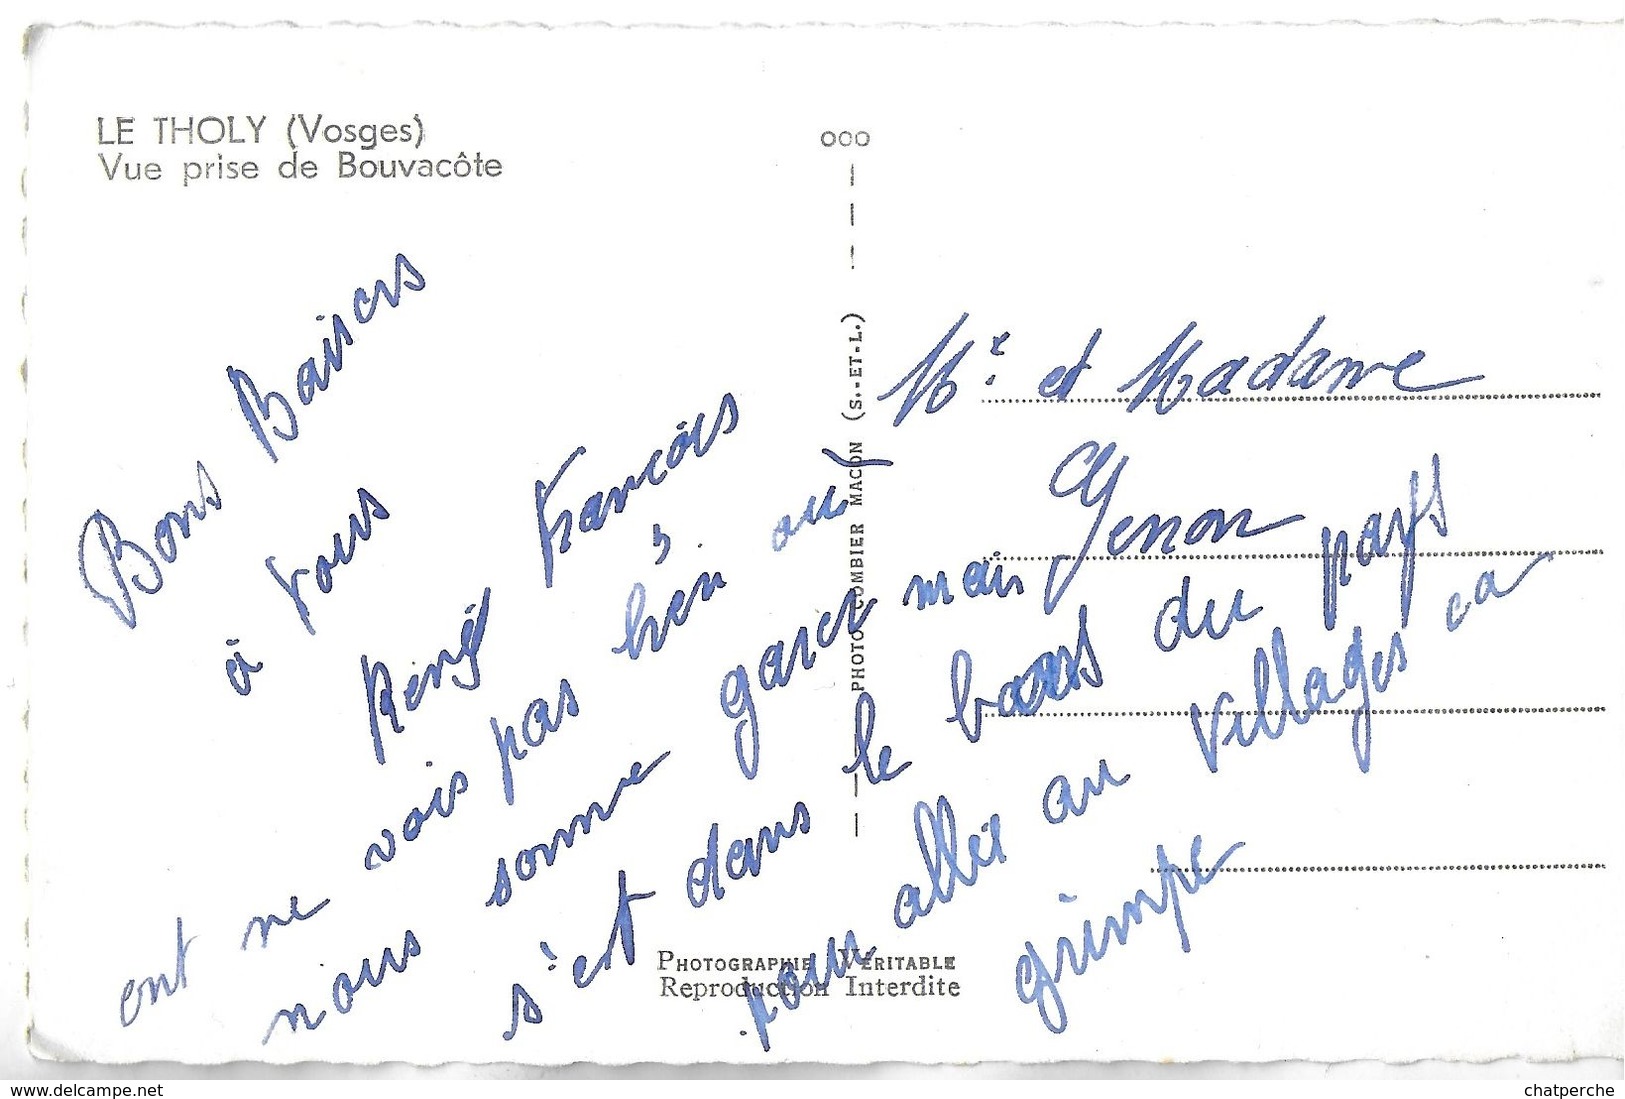 LE THOLY (Vosges)
Vue prise de Bouvacôte
000
PHOTO COMBIER MACON (S.-ET-L.)
Bons Baisers
à tous
René François
ont ne vois pas bien ou
nous somme garer mais
s'est dans le bas du pays
pour aller au villages ca
grimpe
Mr et Madame
Genon
PHOTOGRAPHIE VÉRITABLE
Reproduction Interdite
delcampe.net
chatperche